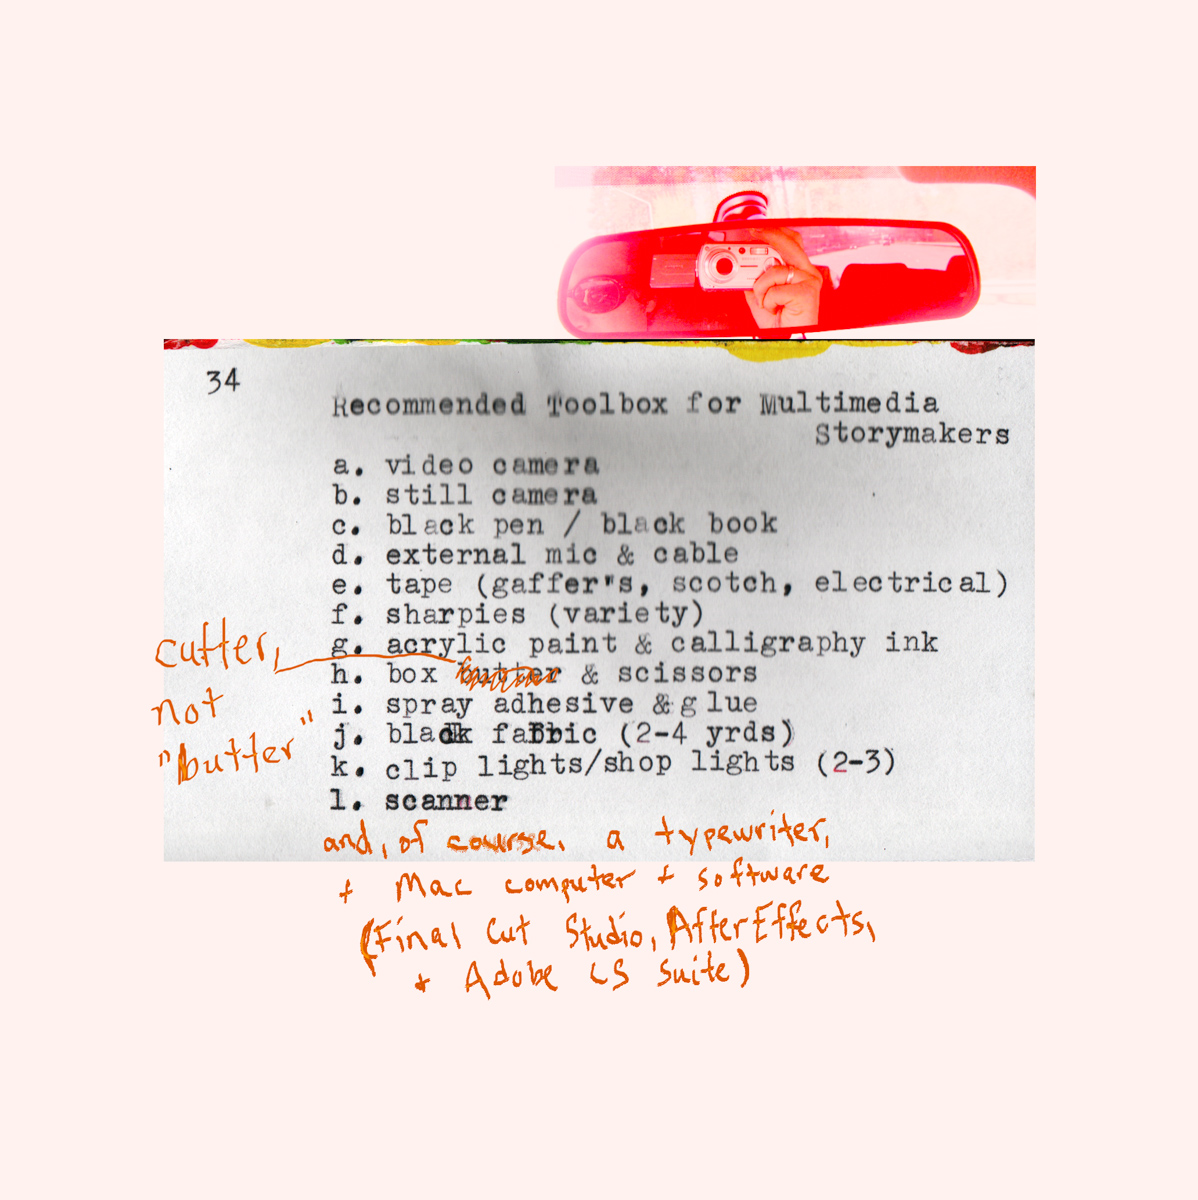 34
Recommended Toolbox for Multimedia
Storymakers
a. video camera
b. still camera
c. black pen / black book
d. external mic & cable
e. tape (gaffer"s, scotch, electrical)
f. sharpies (variety)
g. acrylic paint & calligraphy ink
h. box butter & scissors
i. spray adhesive & glue
j. black fabric (2-4 yrds)
k. clip lights/shop lights (2-3)
l. scanner
cutter,
not
"butter"
and, of course, a typewriter,
+ Mac computer + software
(Final Cut Studio, AfterEffects,
+ Adobe CS Suite)